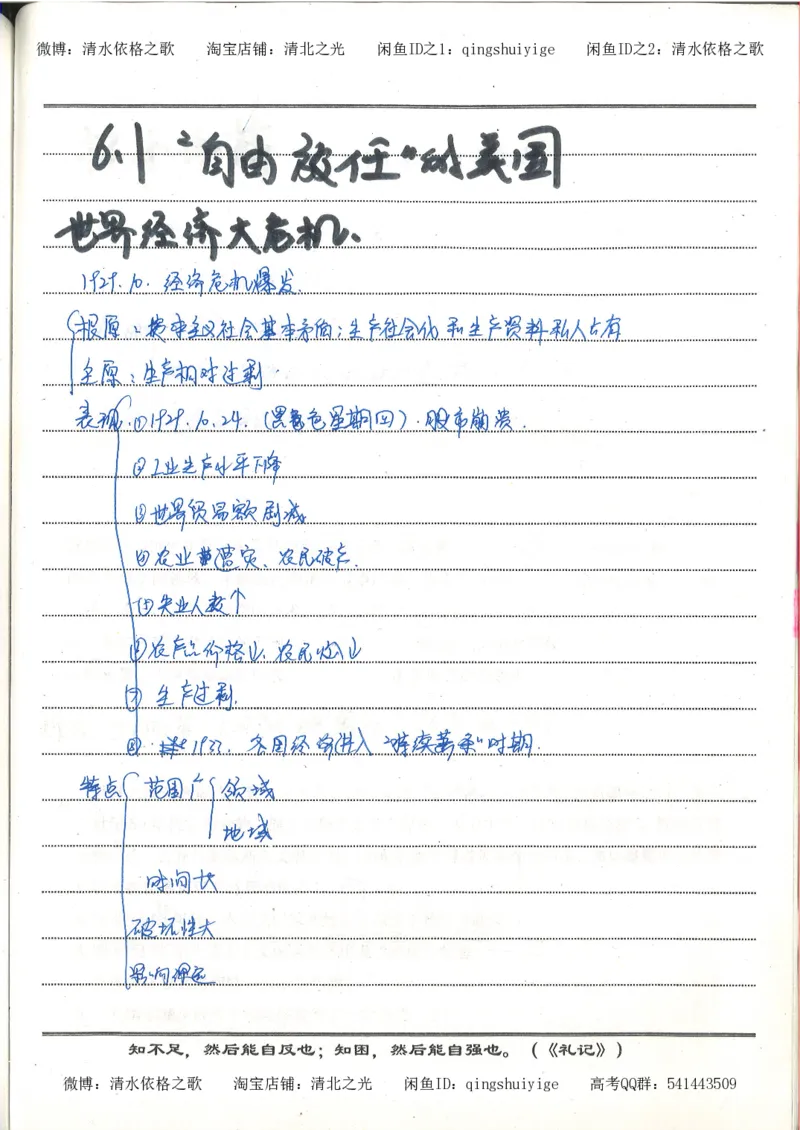 微博：清水依格之歌 淘宝店铺：清北之光 闲鱼ID之1：qingshuiyige 闲鱼ID之2：清水依格之歌
6.1 "自由放任"的美国
世界经济大危机、
1929.10. 经济危机爆发.
根原：资本主义社会基本矛盾：生产社会化和生产资料私人占有
主原：生产相对过剩.
表现 ①1929.10.24.（黑色星期四）.股市崩溃.
②工业生产水平下降
③世界贸易额剧减
④农业遭灾、农民破产.
⑤失业人数↑
⑥农产品价格↓、农民收入↓
⑦生产过剩.
⑧ 1933. 各国经济进入"持续萧条"时期.
特点 范围广 领域
地域
时间长
破坏性大
影响深远
知不足，然后能自反也；知困，然后能自强也。（《礼记》）
微博：清水依格之歌 淘宝店铺：清北之光 闲鱼ID：qingshuiyige 高考QQ群：541443509